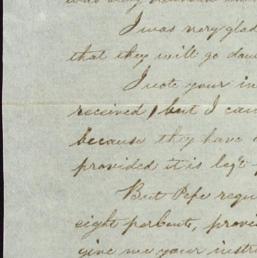 I was very glad
that they will go down
I note your in
received, but I can
because they have
provided it is left
But Pepe requ
eight per cents, provi
give me your instr